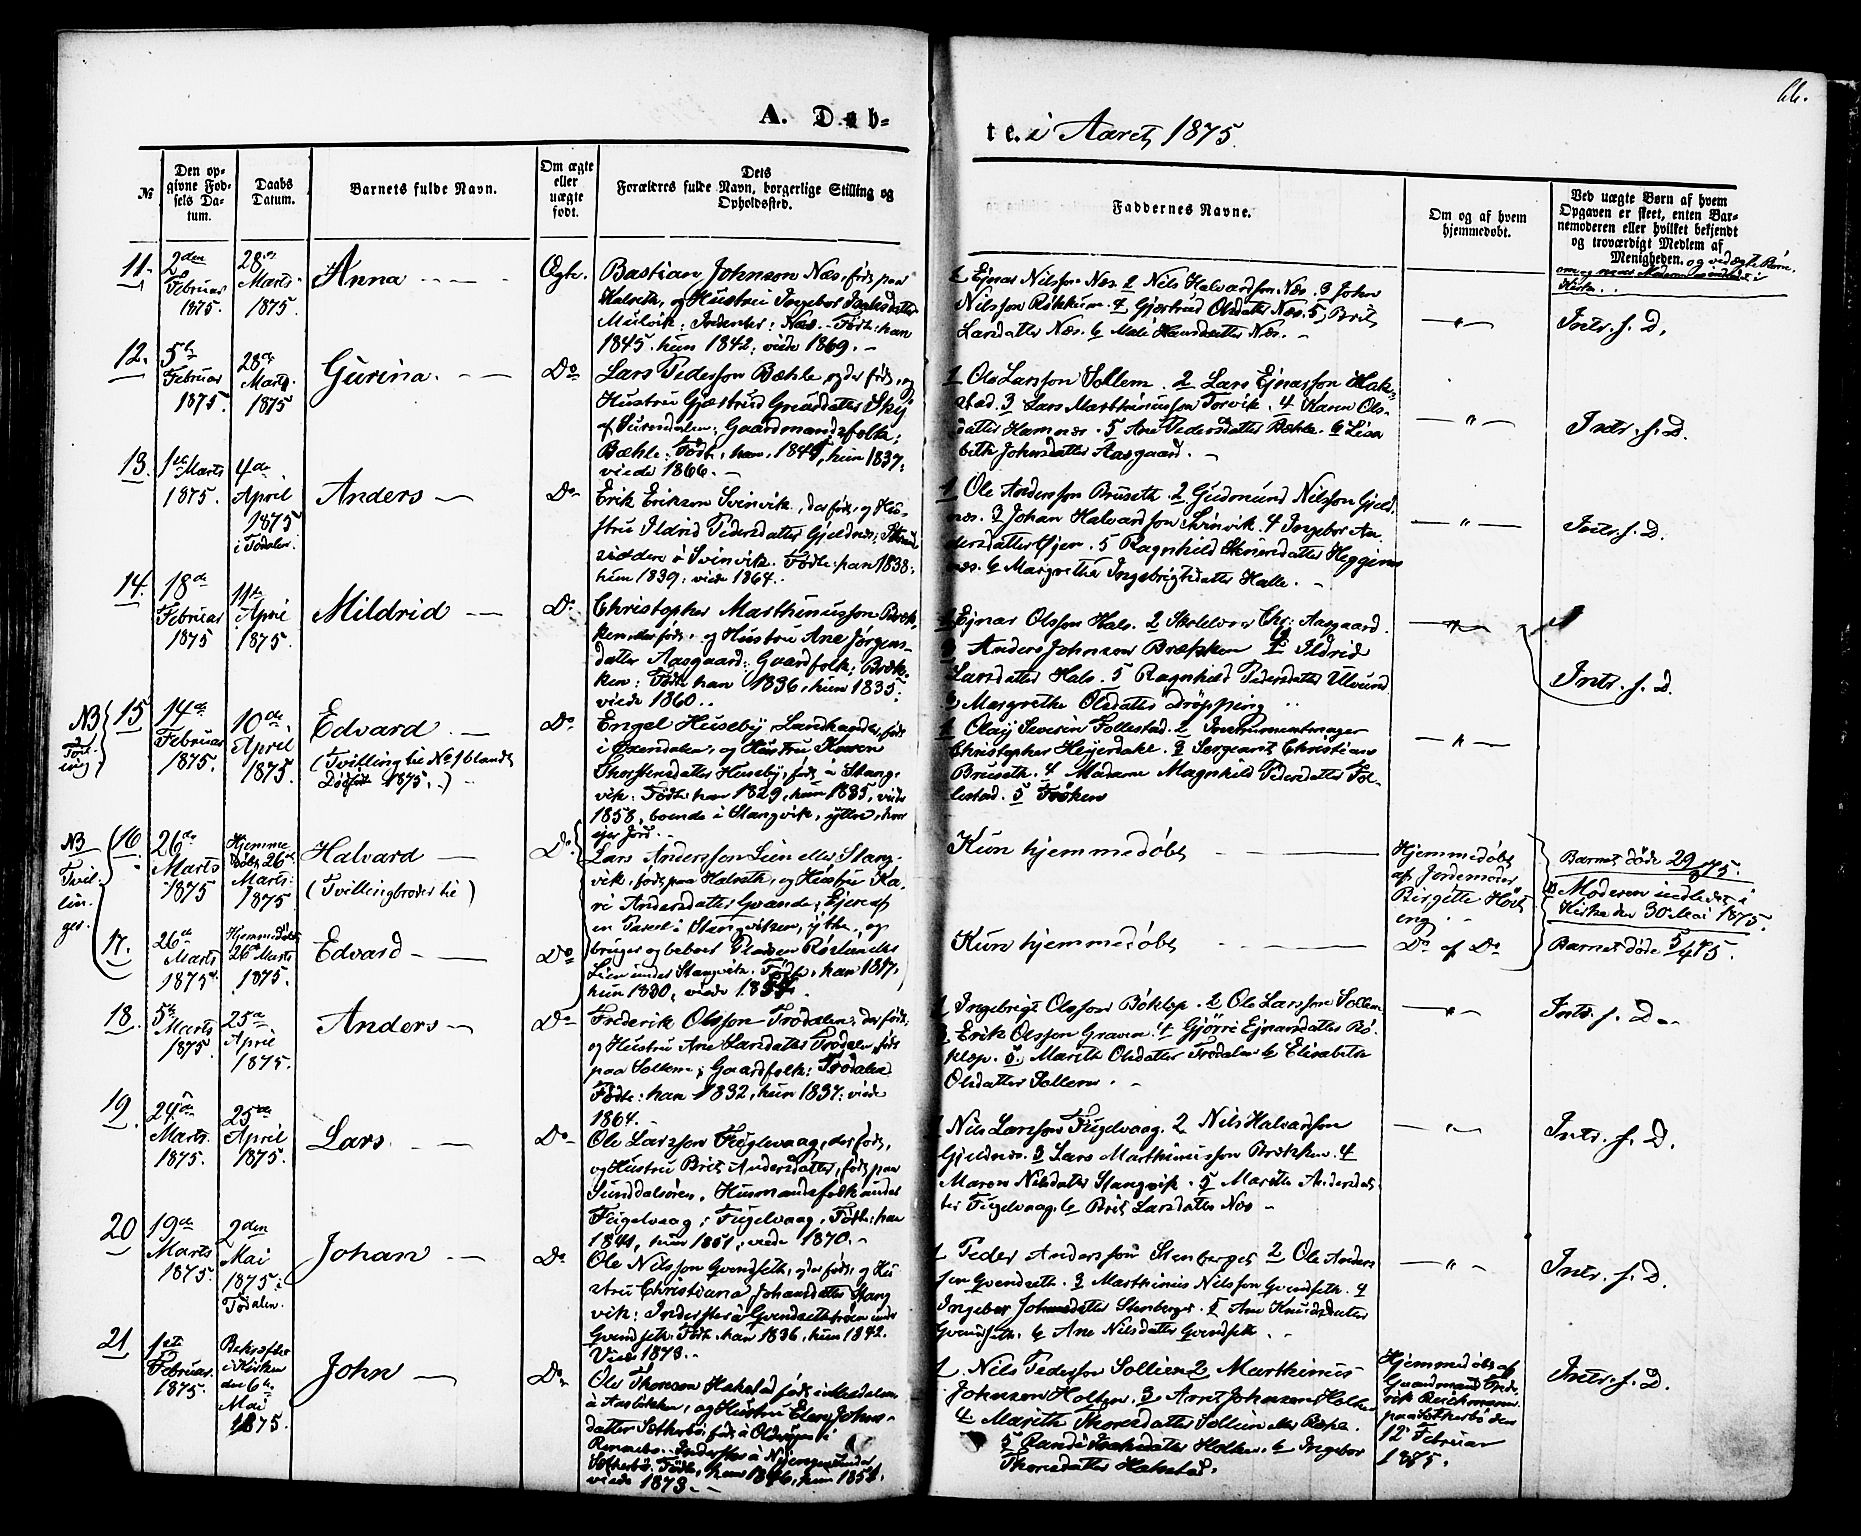 66.
A. Døb-
te. i Aaret 1875.
№
Den op-
givne Fød-
sels Da-
tum.
Daabs
Datum.
Barnets fulde Navn.
Om ægte
eller
uægte
født.
Dets
Forældres fulde Navn, borgerlige Stilling og
Opholdssted.
Faddernes Navne.
Om og af hvem
hjemmedøbt.
Ved uægte Børn af hvem
Opgaven er skeet, enten Bar-
nemoderen eller hvilket bekjendt
og troværdigt Medlem af
Menigheden. og ved ægte Børn
11.
2den
Februar
1875.
28de
Marts
1875.
Anna
Ægte.
Bastian Johnson Næs, født paa
Halseth, og Hustru Ingebor
Mulvik: Inderster: Næs. Født: han
1845. hun 1842; viede 1869.
1 Ejnar Nilsson Næs. 2 Nils Halvardson Næs. 3 John
Nilsson Røkkum. 4 Gjertrud Olsdatter Næs. 5 Brit
Larsdatter Næs. 6 Mali Hansdatter Næs.
— " —
Intr. s. D.
12.
5te
Februar
1875.
28de
Marts
1875
Gurina.
Do
Lars Pederson Bæhle, og der født, og
Hustru Gjertrud
af Surendalen; Gaardmandsfolk;
Bæhle: Født: han 1845, hun 1837;
viede 1866.
1 Ole Larsson Sollem. 2 Lars Ejnarsson Hak-
stad. 3 Lars Marthinusson Torvik. 4 Karen Ols-
datter Hamnes. 5 Ane Pedersdatter Bæhle. 6 Lisa-
beth Johnsdatter Aasgaard.
— " —
Intr. s. D.
13.
1ste Marts
1875.
4de
April
1875
i Todalen.
Anders
Do
Erik Erikson Svinvik, der født, og Hu-
stru Ildrid Pedersdatter Gjeldnes;
i Svinvik. Født: han 1838;
hun 1839; viede 1864.
1 Ole Andersson Bruseth. 2 Gudmund Nilsson Gjeld-
næs. 3 Johan Halvardson Svinvik. 4 Ingebor An-
dersdatter Øjen. 5 Ragnhild Heggem-
næs. 6 Margrethe Ingebrigtsdatter Halle.
— " —
Intr. s. D.
14.
18de
Februar
1875
11te
April
1875.
Mildrid
Do
Christopher Marthinusson Bræk-
ken, der født, og Hustru Ane Jørgens-
datter Aasgaard; Gaardfolk; Bræk-
ken: Født: han 1836, hun 1835;
viede 1860.
1 Ejnar Olsson Hals. 2 Skolelærer Chr: Aasgaard.
3 Anders Johnson Brækken. 4 Ildrid
Larsdatter Hals. 5 Ragnhild Pedersdatter Ulvund
6 Margrethe Olsdatter Drøpping
— " —
Intr. s. D.
NB
15
14de
Februar
1875.
10de
April
1875.
Edvard.
(Tvilling til No 9 blandt
Døde 1875.)
Do
Engel Huseby, Landhandler, født
i Øxendalen, og Hustru Karen
Thorstensdatter Huseby, født i Stang-
vik: Født: han 1829, hun 1835, viede
1858, boende i Stangvik, yttre, hvor
ejer Jord.
1 Olaf Severin Follestad. 2 Instrumentmager
Christopher Heyerdahl. 3 Sergeant Christian
Bruseth. 4 Madame Magnhild Pedersdatter Fol-
lestad. 5 Frøken
— " —
NB
Tvil-
lin-
ger.
16.
26de
Marts
1875
Hjemme
døbt 26de
Marts
1875
Halvard
(Tvillingbroder til)
Do
Lars Andersson Lien eller Stang-
vik, født paa Halseth, og Hustru Ka-
ri Andersdatter Kvande; Ejere af
en Parcel i Stangviken, ytre, og
bruger og beboer Pladsen
Lien under Stangvik. Født: han 1817,
hun 1830, viede 1854.
Kun hjemmedøbt
Hjemmedøbt
af Jordemoder
Birgitte
eng.
Barnet døde 29/3 75.
Moderen indledet i
Kirke den 30 Mai 1875.
17.
26de
Marts
1875.
Hjemmedøbt
26de Marts
1875.
Edvard
Do
Kun hjemmedøbt
Do af Do
Barnet døde 5/4 75.
18.
5te
Marts
1875.
25de
April
1875.
Anders
Do
Frederik Olsson Trødalen, der født,
og Hustru Ane Larsdatter Trødalen, født
paa Sollem; Gaardfolk; Trødalen.
Født: han 1832, hun 1837; viede
1864.
1 Ingebrigt Olsson Bøklep. 2 Ole Larsson Sollem
3 Erik Olsson Graven. 4 Gjørri Ejnarsdatter Bø-
klep. 5 Marith Olsdatter Trødalen 6 Elisabeth
Olsdatter Sollem.
— " —
Intr. s. D.
19.
24de
Marts
1875.
25de
April
1875.
Lars.
Do
Ole Larsson Fuglevaag, der født,
og Hustru Brit Andersdatter, født paa
Sunddalsøren. Husmandsfolk under
Fuglevaag; Fuglevaag. Født: han
1844, hun 1851; viede 1870.
1 Nils Larsson Fuglevaag. 2 Nils Halvardson
Gjeldnes. 3 Lars Marthinusson Brækken. 4
Maren Nilsdatter Stangvik. 5 Marith Andersdat-
ter Fuglevaag. 6 Brit Larsdatter Næs
— " —
Intr. s. D.
20
19de
Marts
1875.
2den
Mai
1875:
Todalen.
Johan
Do
Ole Nilsson Qvendseth, og der født, og Hu-
stru Christiana Johansdatter Stang-
vik: Inderster i under
Qvendseth. Født: han 1836, hun 1842.
Viede 1873.
1 Peder Andersson Stenberget 2 Ole Anders-
son Qvendseth. 3 Marthinus Nilsson Qvendseth. 4
Ingebor Stenberget. 5 Ane Knudsdatter
Qvendseth. 6 Ane Nilsdatter Qvendseth.
— " —
Intr. s. D.
21
1ste
Februar
1875.
Bekræftet
i Kirken
den 6te
Mai
1875.
John
Do
Ole Thoreson Hakstad født i Meldalen
og Hustru Elen Johns-
datter Sætherbø, født i
Rennebo. Inderster i under
Sætherbø. Født: han 1846, hun 1851.
viede 1873.
1 Nils Pederson Sollien 2 Marthinus
Johnson Holten. 3 Arnt Johnson Holten
4 Marith Thoresdatter Sollien
5 Randi Holten. 6 Ingebor
Thoresdatter Hakstad.
Hjemmedøbt af
Gaardmand Frede-
rik Reichmann
paa Sætherbø den
12 Februar
1875.
Intr. s. D.